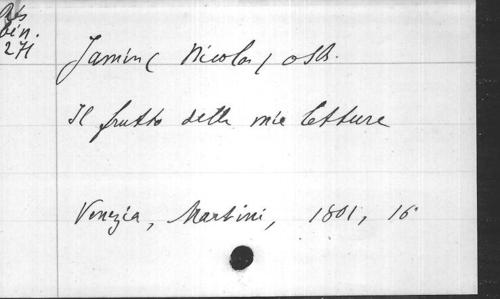 Rés
bén.
271
Jamin ( Nicolas ) OSB.
Il frutto delle mie letture
Venezia, Martini, 1801, 16°